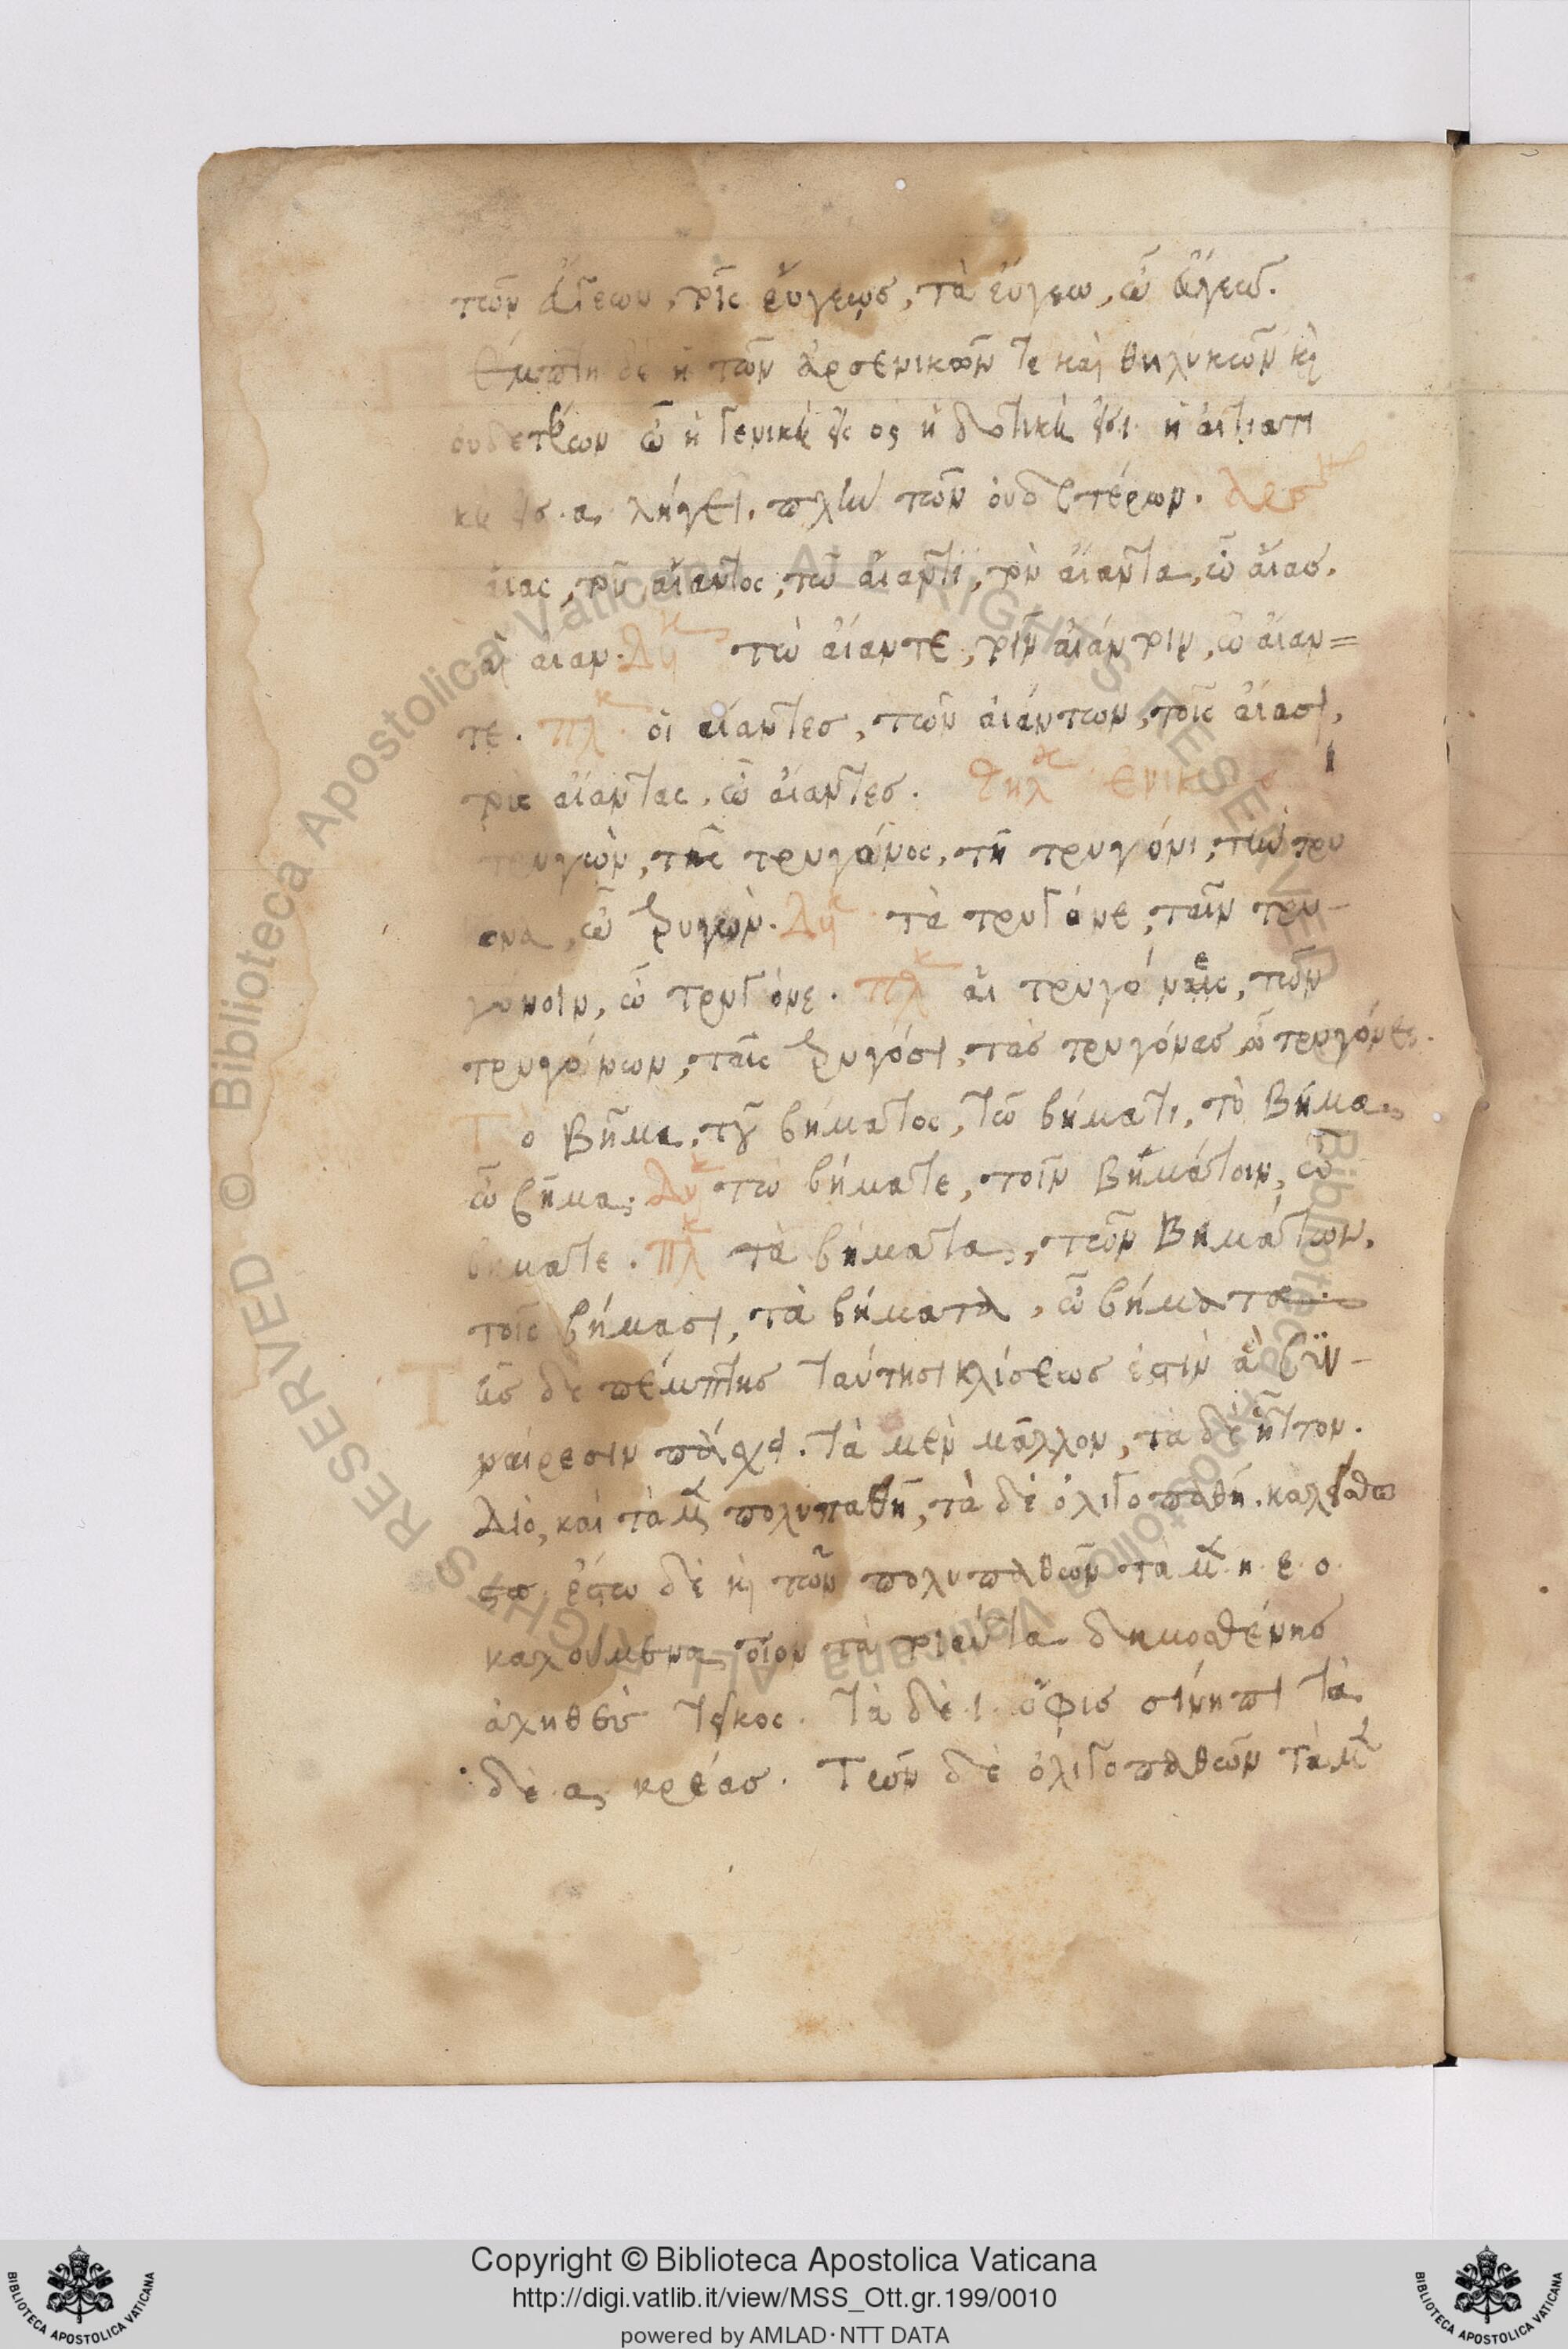 τῶν εὔγεων, τοῖς εὔγεως, τὰ εὔγεω, ὦ εὔγεω.
έμπτη δὲ ἡ τῶν ἀρσενικῶν τε καὶ θηλυκῶν κὶ
οὐδετέρων ὧν ἡ γενικὴ εἰς ος ἡ δοτικὴ εἰς ι. ἡ αἰτιατι
κὴ εἰς α, λήγει, πλὴν τῶν οὐδετέρων. Αρσκ
αἴας, τοῦ αἴαντος, τῶ αἴαντι, τὸν αἴαντα, ὦ αἴας,
αἶαν. Δυκ τὼ αἴαντε, τοῖν αἰάντοιν, ὦ αἴαν=
τε. πλκ οἱ αἴαντες, τῶν αἰάντων, τοῖς αἴασι,
τοὺς αἴαντας, ὦ αἴαντες. Θηλκ Ενικ
τρυγὼν, τῆς τρυγόνος, τῆ τρυγόνι, τὴν τρυ
ονα, ὦ τρυγὼν. Δυκ τὰ τρυγόνε, ταῖν τρυ-
γόνοιν, ὦ τρυγόνε. πλκ αἱ τρυγόνες, τῶν
τρυγόνων, ταῖς τρυγόσι, τὰς τρυγόνας ὦ τρυγόνες.
Τὸ Βῆμα, τοῦ βήματος, τῶ βήματι, τὸ Βῆμα,
ὦ βῆμα, Δυκ τὼ βήματε, τοῖν Βημάτοιν, ὦ
βήματε. Πλκ τὰ βήματα, τῶν Βημάτων,
τοῖς βήμασι, τὰ βήματα, ὦ βήματα.
Τῆς δὲ πέμπτης ταύτησι κλίσεως ἐστὶν ἃ συν-
ναίρεσιν πάσχει. τὰ μὲν μᾶλλον, τὰ δὲ ἧττον.
Διὸ, καὶ τὰ μὲν πολυπαθῆ, τὰ δὲ ὀλιγοπαθῆ. καλείσθω
ἔστω δὲ κὶ τῶν πολυπαθῶν τὰ μὲν η. ε. ο.
καλούμενα, οἷον τὰ τοιαῦτα δημοσθένης
ἀληθὲς τεῖχος. τὰ δὲ ι. ὄφις σίνηπι τὰ
δὲ α, κρέας. Τῶν δὲ ὀλιγοπαθῶν τὰ μὲν
Copyright © Biblioteca Apostolica Vaticana
http://digi.vatlib.it/view/MSS_Ott.gr.199/0010
powered by AMLAD·NTT DATA